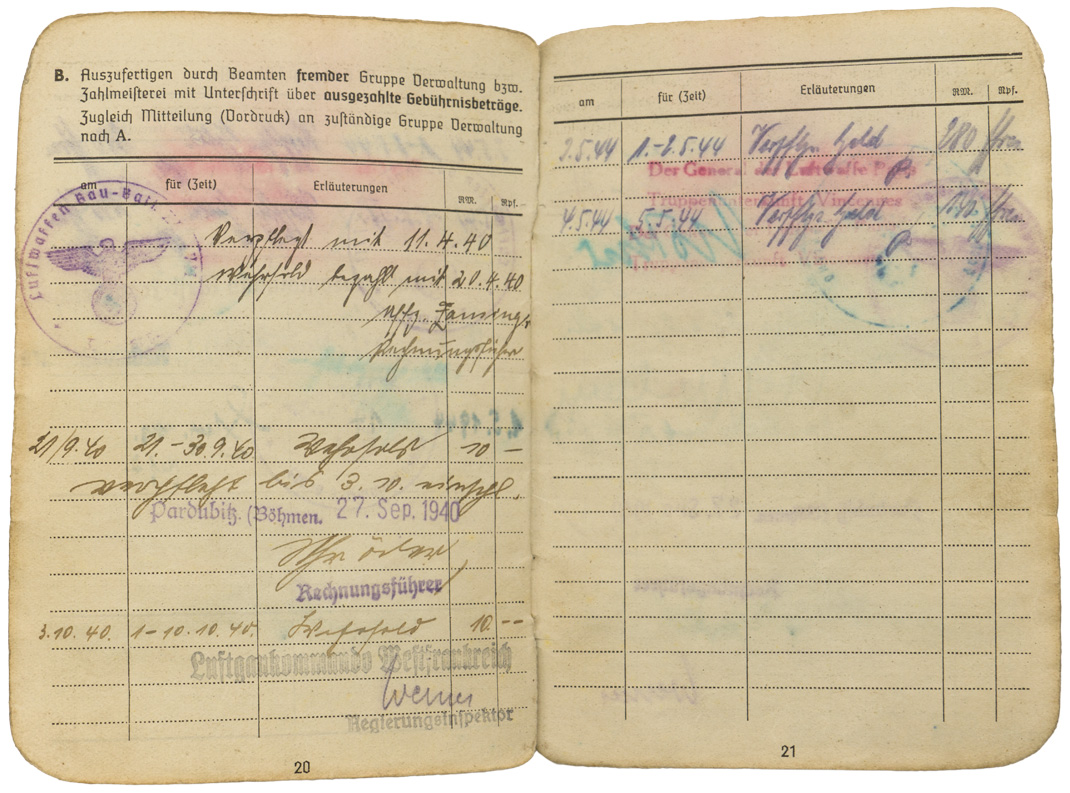 B. Auszufertigen durch Beamten fremder Gruppe Verwaltung bzw.
Zahlmeisterei mit Unterschrift über ausgezahlte Gebührnisbeträge.
Zugleich Mitteilung (Vordruck) an zuständige Gruppe Verwaltung
nach A.
am für (Zeit) Erläuterungen RM. Rpf.
Luftwaffen Bau-Batl.
Verpflegt mit 11.4.40
Wehrsold bezahlt mit 20.4.40
Uffz.
Rechnungsführer
21/9.40 21.-30 9.40 Wehrsold 10 –
verpflegt bis 3. 10. einschl.
Pardubitz. (Böhmen. 27. Sep. 1940
Schröder
Rechnungsführer
3.10.40. 1-10.10.40. Wehrsold 10.--
Luftgaukommando Westfrankreich
Werner
Regierungsinspektor
20
am für (Zeit) Erläuterungen RM. Rpf.
2.5.44 1.-2.5.44 Verpflg. Geld 280 frcs
Der General der Luftwaffe Paris
Truppenunterkunft Vincennes
4.5.44 5.5.44 Verpflg. Geld 140 frcs
21